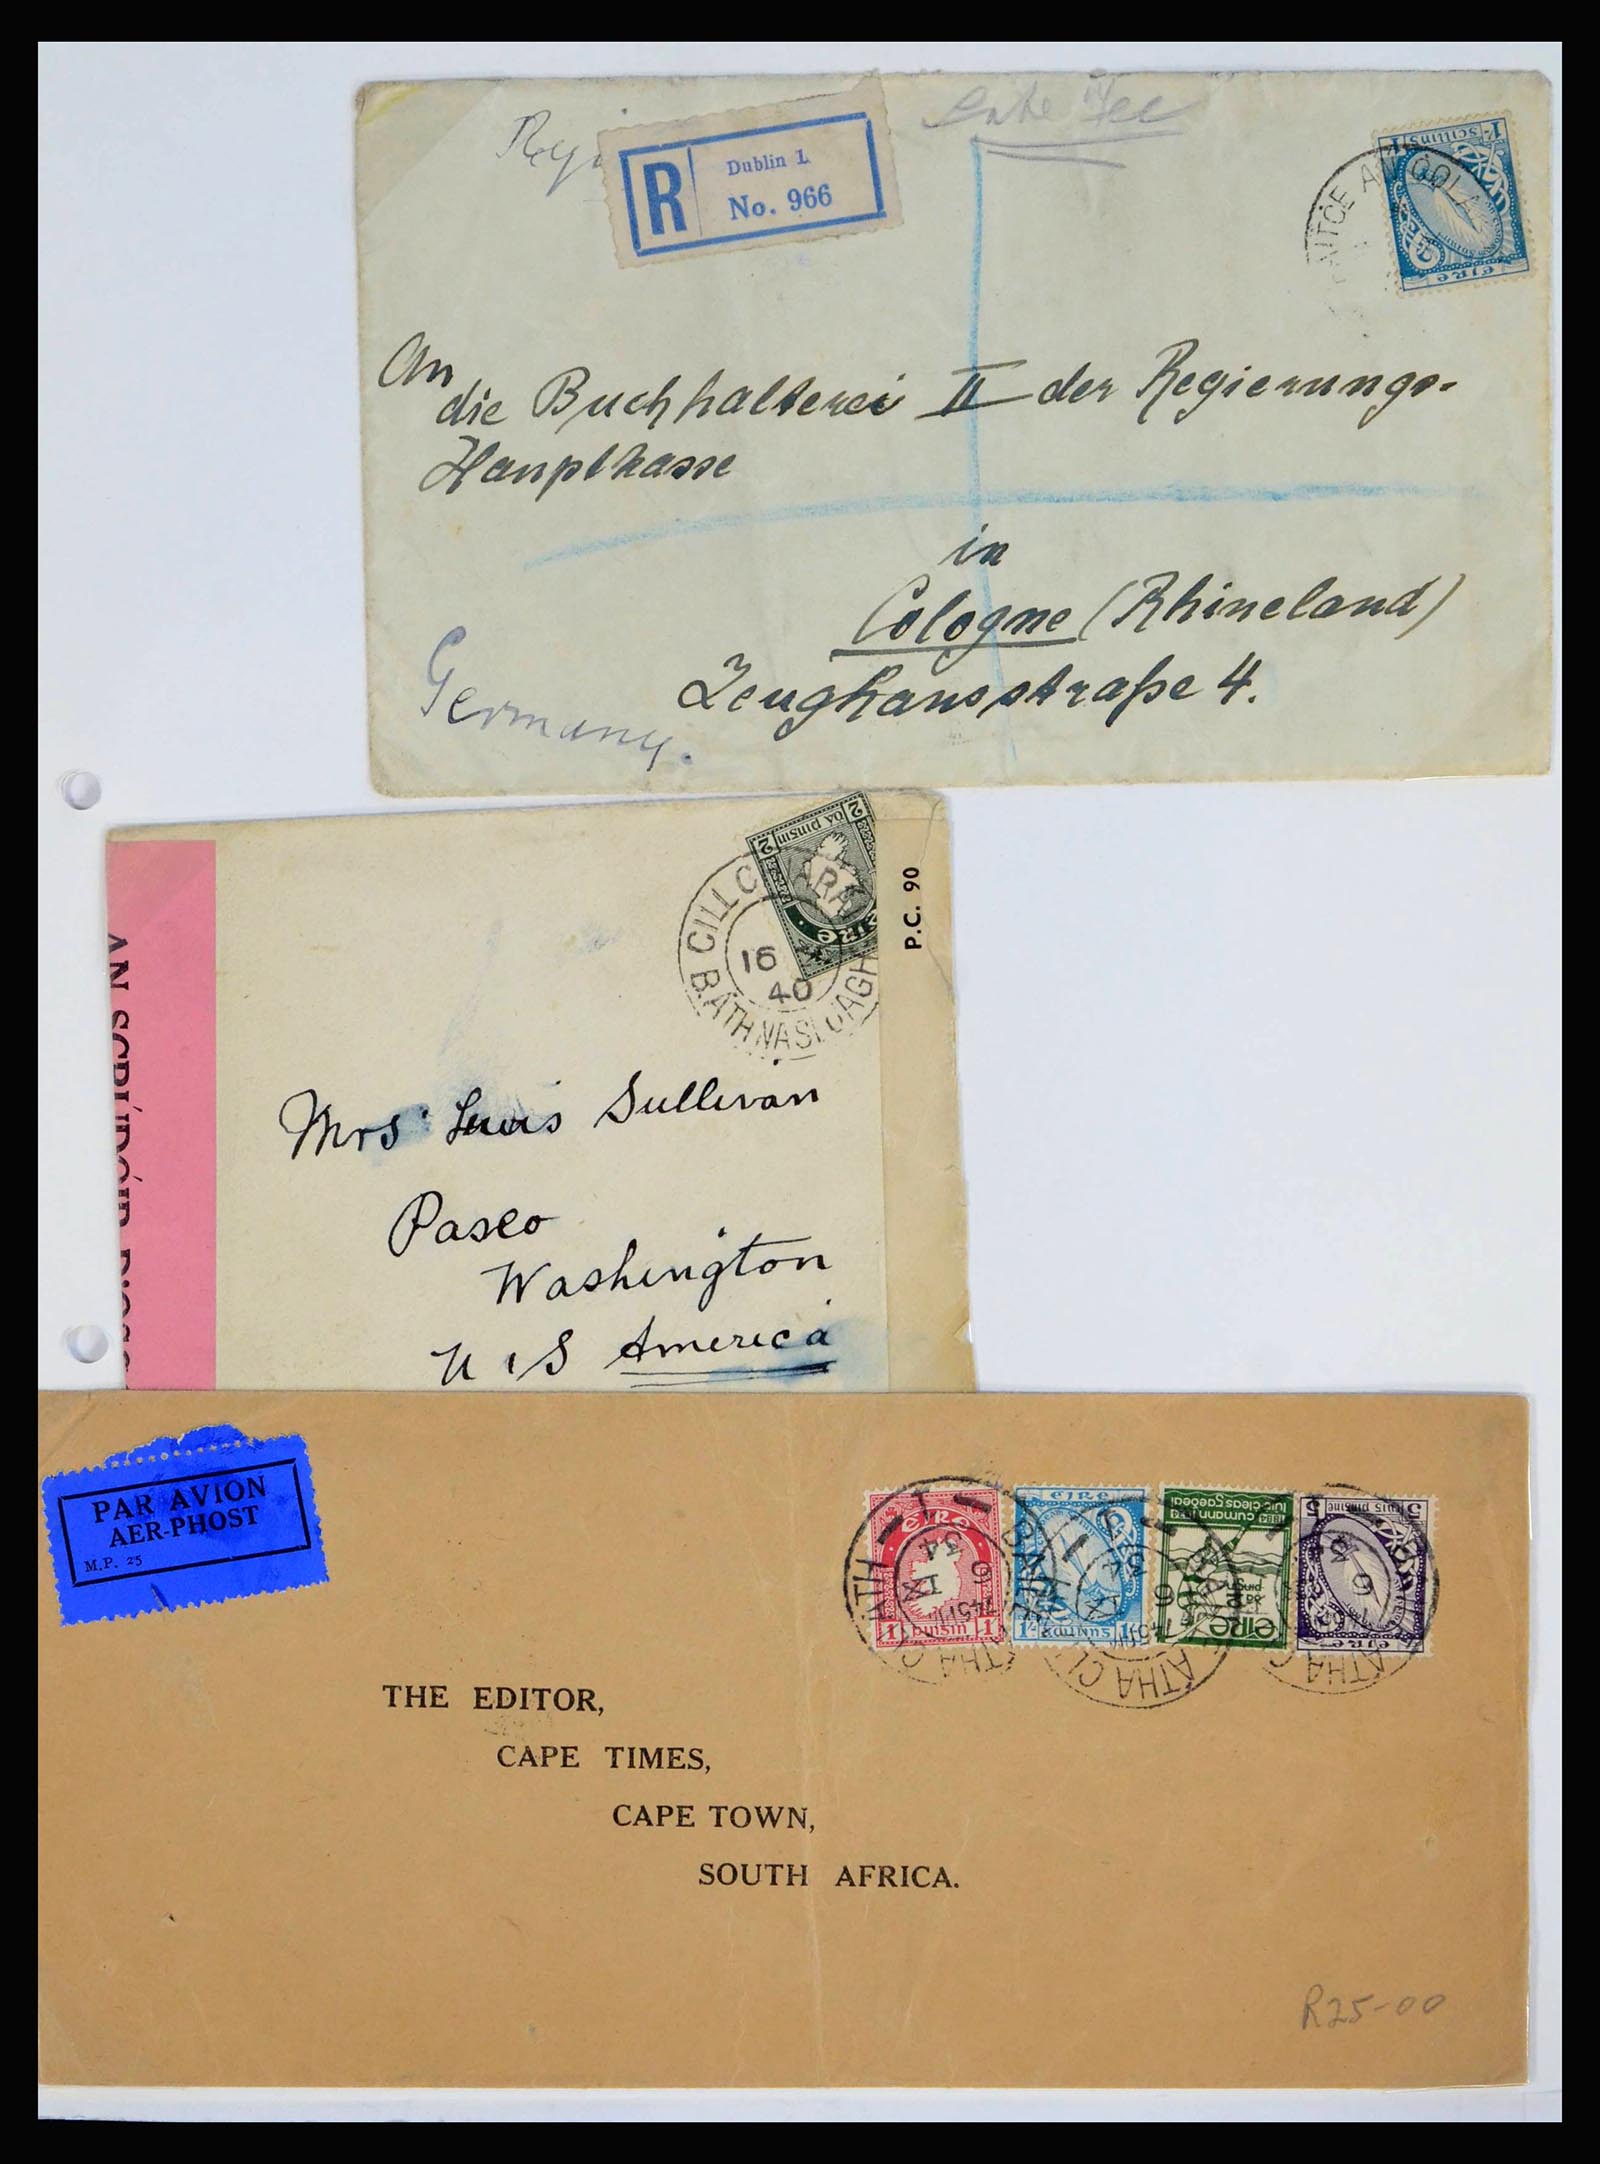 Late Fee
R
Dublin 1.
No. 966
1/- SCILLING 1/-
éire
An
die Buchhalterei II der Regierungs-
Hauptkasse
in
Cologne (Rhineland)
Zeughausstraße 4.
Germany.
2 dá pinsin 2
éire
CILL C
16
40
P.C. 90
AN SCRÚDÓIR D'OSC
Mrs Luis Sullivan
Pasco
Washington
U S America
PAR AVION
AER-PHOST
M.P. 25
éire
1 pinsin 1
éire
1/-
cumann
luthcleas gaedeal
1884 1934
éire
5 5
éire
THE EDITOR,
CAPE TIMES,
CAPE TOWN,
SOUTH AFRICA.
R25-00